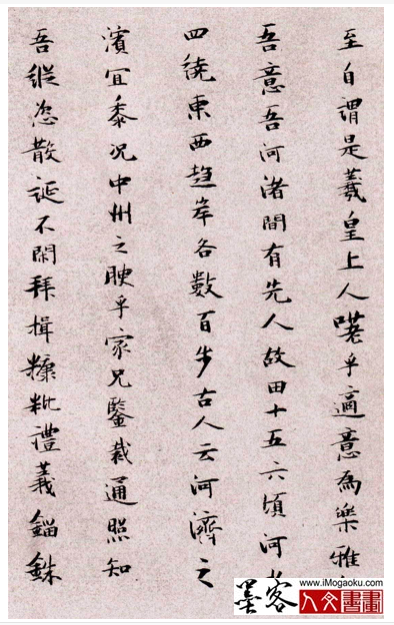 至自謂是羲皇上人嗟乎適意為樂雅
吾意吾河渚間有先人故田十五六頃河
四繞東西趍岸各數百步古人云河濟之
濱宜黍况中州之腴乎家兄鑒裁通照知
吾縱恣散誕不閑拜揖糠粃禮義錙銖
墨客
www.iMogaoku.com
人文書畫